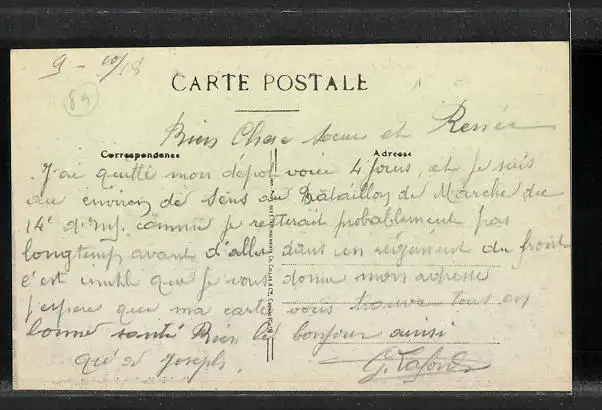 9 - 10/18
89
CARTE POSTALE
Bien Chere soeur et Renée
Correspondance
Adresse
J'ai quitté mon dépot voici 4 jours, et je suis
au environ de Sens au Bataillon de Marche du
14e d'Inf. comme je resterait probablement pas
longtemp avant d'aller dans un régiment du front
c'est inutile que je vous donne mon adresse
j'espere que ma carte vous trouve tous en
bonne santé Bien le bonjour ainsi
qu'a Joseph.